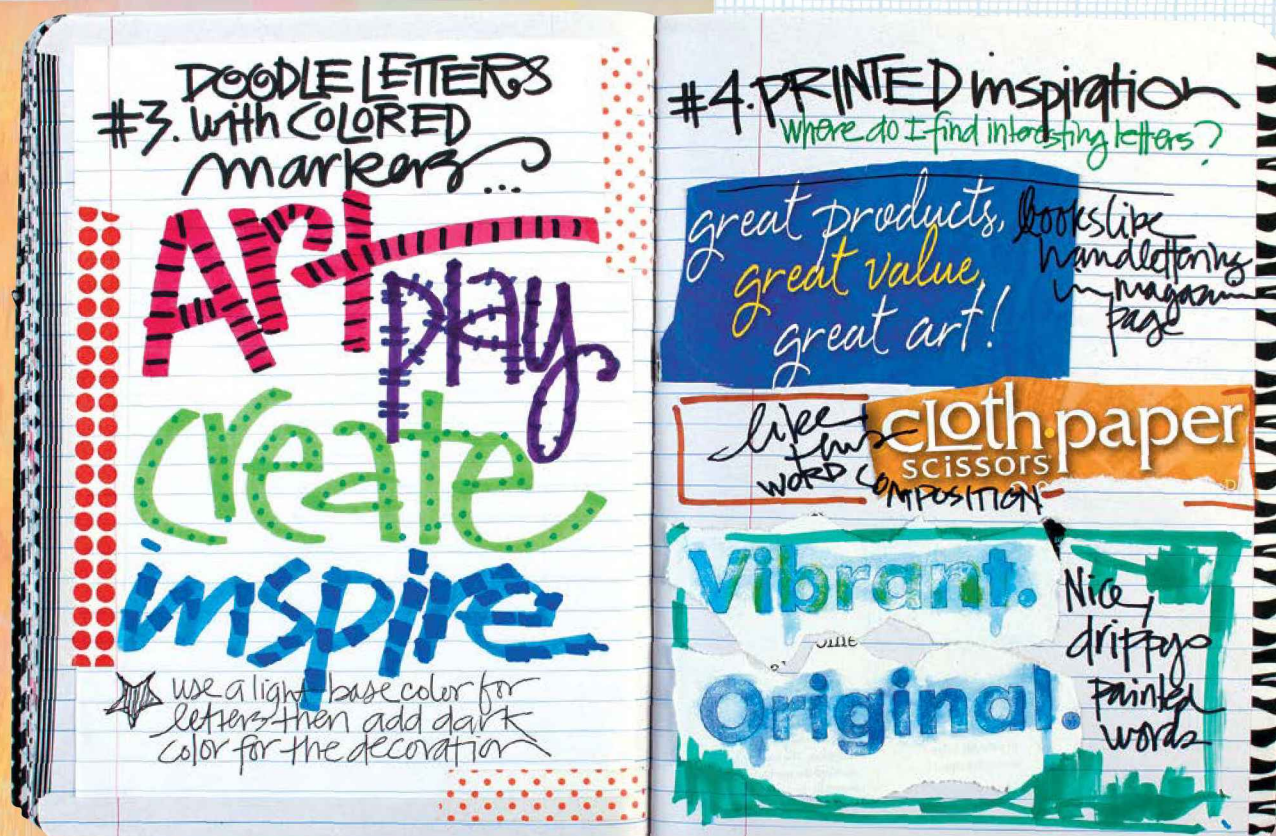 DOODLE LETTERS
#3. with COLORED
markers...
Art
play
create
inspire
use a light base color for
letters then add dark
color for the decoration
#4. PRINTED inspiration
where do I find interesting letters?
great products,
great value,
great art!
looks like
handlettering
in magazine
page
like
this
WORD COMPOSITION
cloth·paper
scissors
Vibrant.
Original.
Nice,
drippy
painted
words